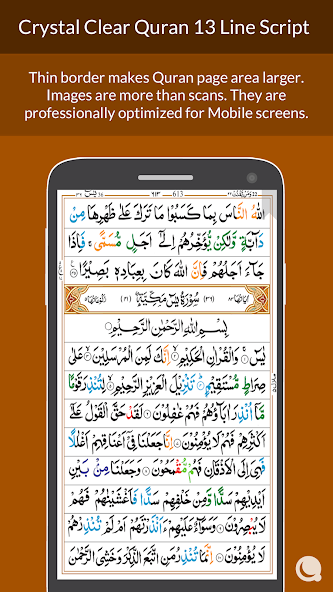 Crystal Clear Quran 13 Line Script
Thin border makes Quran page area larger.
Images are more than scans. They are
professionally optimized for Mobile screens.
يٰسٓ 36 613 ٦١٣
اللّٰهُ النَّاسَ بِمَا كَسَبُوْا مَا تَرَكَ عَلٰى ظَهْرِهَا مِنْ
دَآبَّةٍ وَّلٰكِنْ يُّؤَخِّرُهُمْ اِلٰٓى اَجَلٍ مُّسَمًّى ۚ فَاِذَا
جَآءَ اَجَلُهُمْ فَاِنَّ اللّٰهَ كَانَ بِعِبَادِهٖ بَصِيْرًا ۝
سُوْرَةُ يٰسٓ مَكِّيَّةٌ
بِسْمِ اللّٰهِ الرَّحْمٰنِ الرَّحِيْمِ
يٰسٓ ۝ وَالْقُرْاٰنِ الْحَكِيْمِ ۝ اِنَّكَ لَمِنَ الْمُرْسَلِيْنَ ۝ عَلٰى
صِرَاطٍ مُّسْتَقِيْمٍ ۝ تَنْزِيْلَ الْعَزِيْزِ الرَّحِيْمِ ۝ لِتُنْذِرَ قَوْمًا
مَّآ اُنْذِرَ اٰبَآؤُهُمْ فَهُمْ غٰفِلُوْنَ ۝ لَقَدْ حَقَّ الْقَوْلُ عَلٰٓى
اَكْثَرِهِمْ فَهُمْ لَا يُؤْمِنُوْنَ ۝ اِنَّا جَعَلْنَا فِيْٓ اَعْنَاقِهِمْ اَغْلٰلًا
فَهِيَ اِلَى الْاَذْقَانِ فَهُمْ مُّقْمَحُوْنَ ۝ وَجَعَلْنَا مِنْۢ بَيْنِ
اَيْدِيْهِمْ سَدًّا وَّمِنْ خَلْفِهِمْ سَدًّا فَاَغْشَيْنٰهُمْ فَهُمْ
لَا يُبْصِرُوْنَ ۝ وَسَوَآءٌ عَلَيْهِمْ ءَاَنْذَرْتَهُمْ اَمْ لَمْ تُنْذِرْهُمْ
لَا يُؤْمِنُوْنَ ۝ اِنَّمَا تُنْذِرُ مَنِ اتَّبَعَ الذِّكْرَ وَخَشِيَ الرَّحْمٰنَ